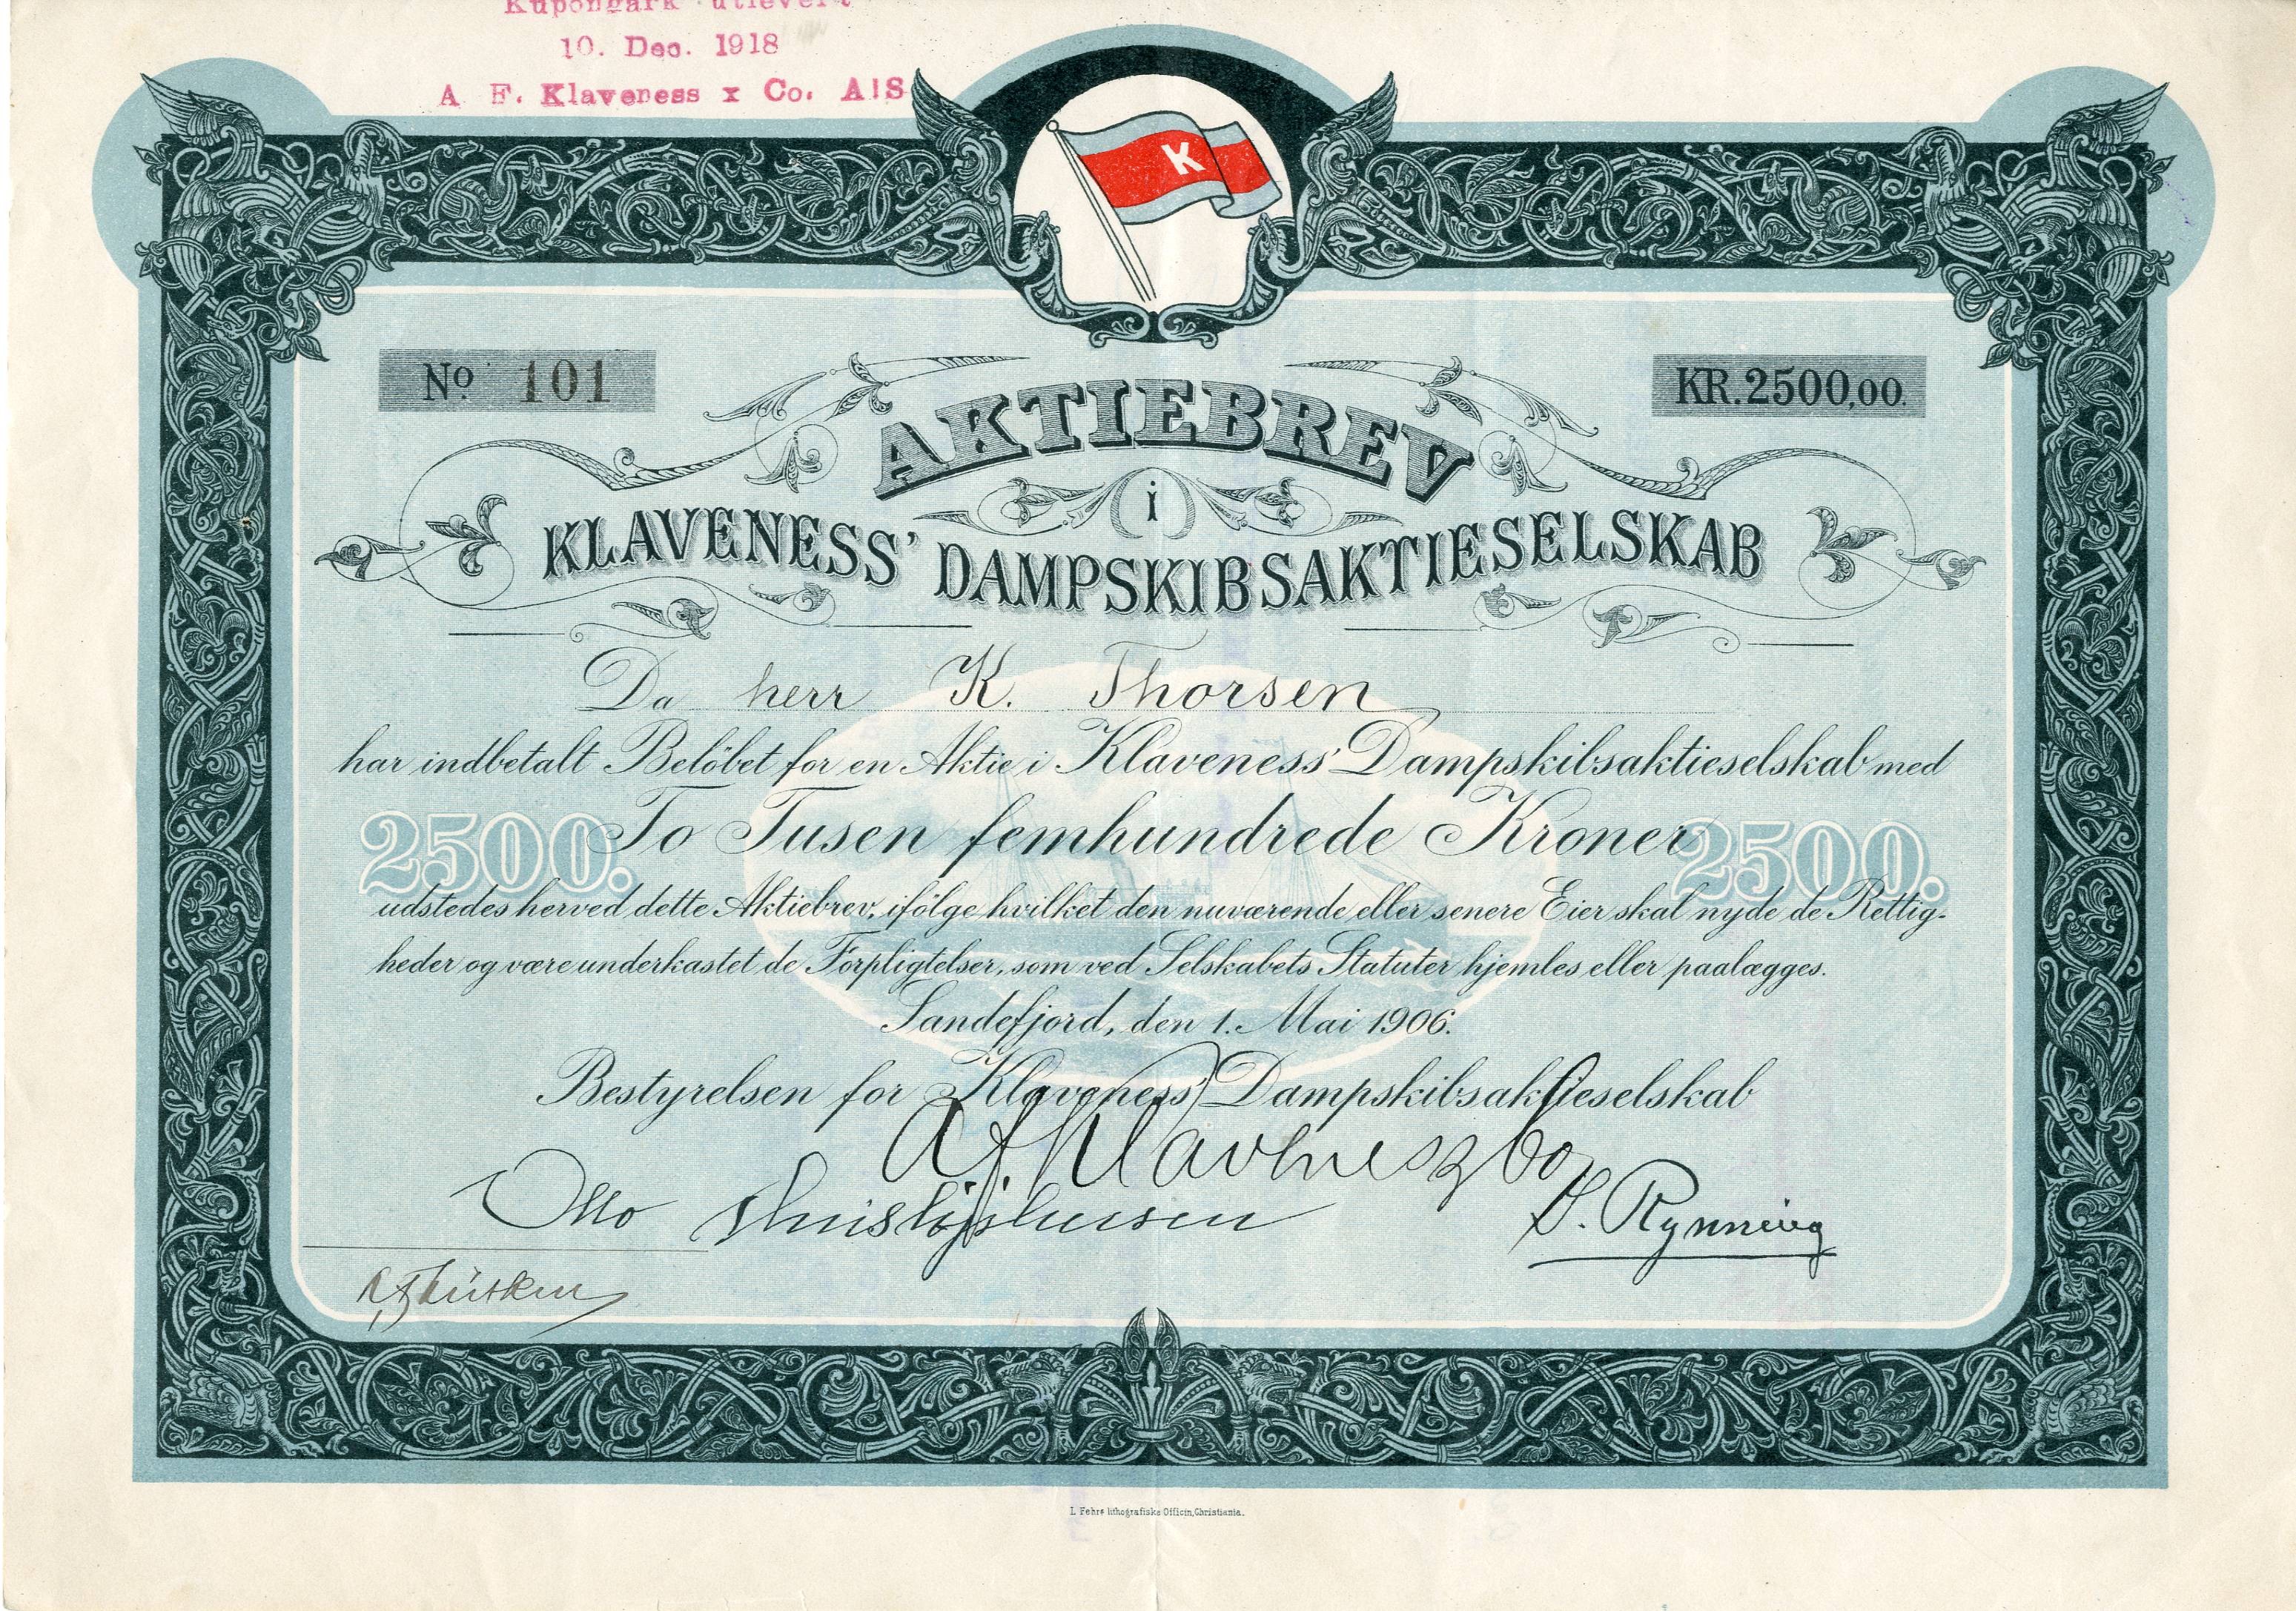 Kupongark utlevert
10. Dec. 1918
A F. Klaveness x Co. A|S
K
No. 101
KR. 2500,00.
AKTIEBREV
i
KLAVENESS' DAMPSKIBSAKTIESELSKAB
Da herr K. Thorsen
har indbetalt Belöbet for en Aktie i Klaveness' Dampskibsaktieselskab med
2500. To Tusen femhundrede Kroner 2500.
udstedes herved dette Aktiebrev, ifölge hvilket den nuværende eller senere Eier skal nyde de Rettig-
heder og være underkastet de Forpligtelser, som ved Selskabets Statuter hjemles eller paalægges.
Sandefjord, den 1. Mai 1906.
Bestyrelsen for Klaveness' Dampskibsaktieselskab
A F Klaveness & Co
Otto Thoresen
S. Rynning
L. Fehrs lithografiske Officin, Christiania.